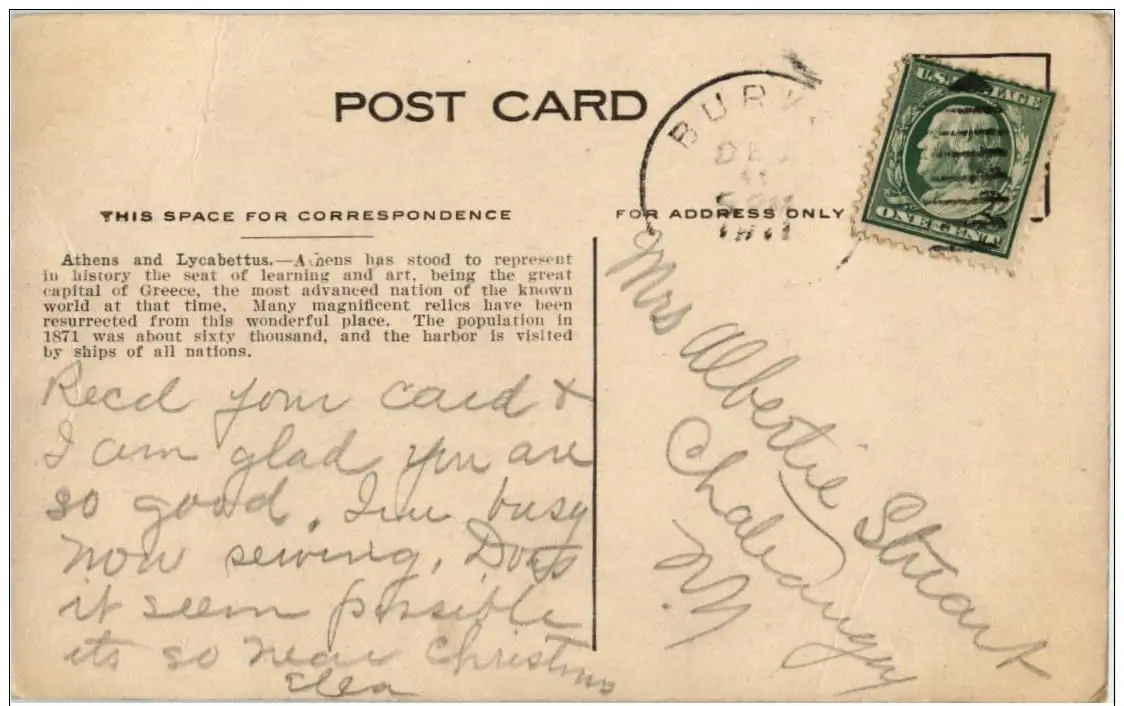 POST CARD
BURK
DE
5 PM
1911
U.S. POSTAGE
ONE CENT
THIS SPACE FOR CORRESPONDENCE
FOR ADDRESS ONLY
Athens and Lycabettus.—Athens has stood to represent
in history the seat of learning and art, being the great
capital of Greece, the most advanced nation of the known
world at that time. Many magnificent relics have been
resurrected from this wonderful place. The population in
1871 was about sixty thousand, and the harbor is visited
by ships of all nations.
Recd your card &
I am glad you are
so good. I'm busy
now sewing. Don't
it seem possible
its so near Christmas
Mrs Albertie Stuart
Chateaugay
N.Y